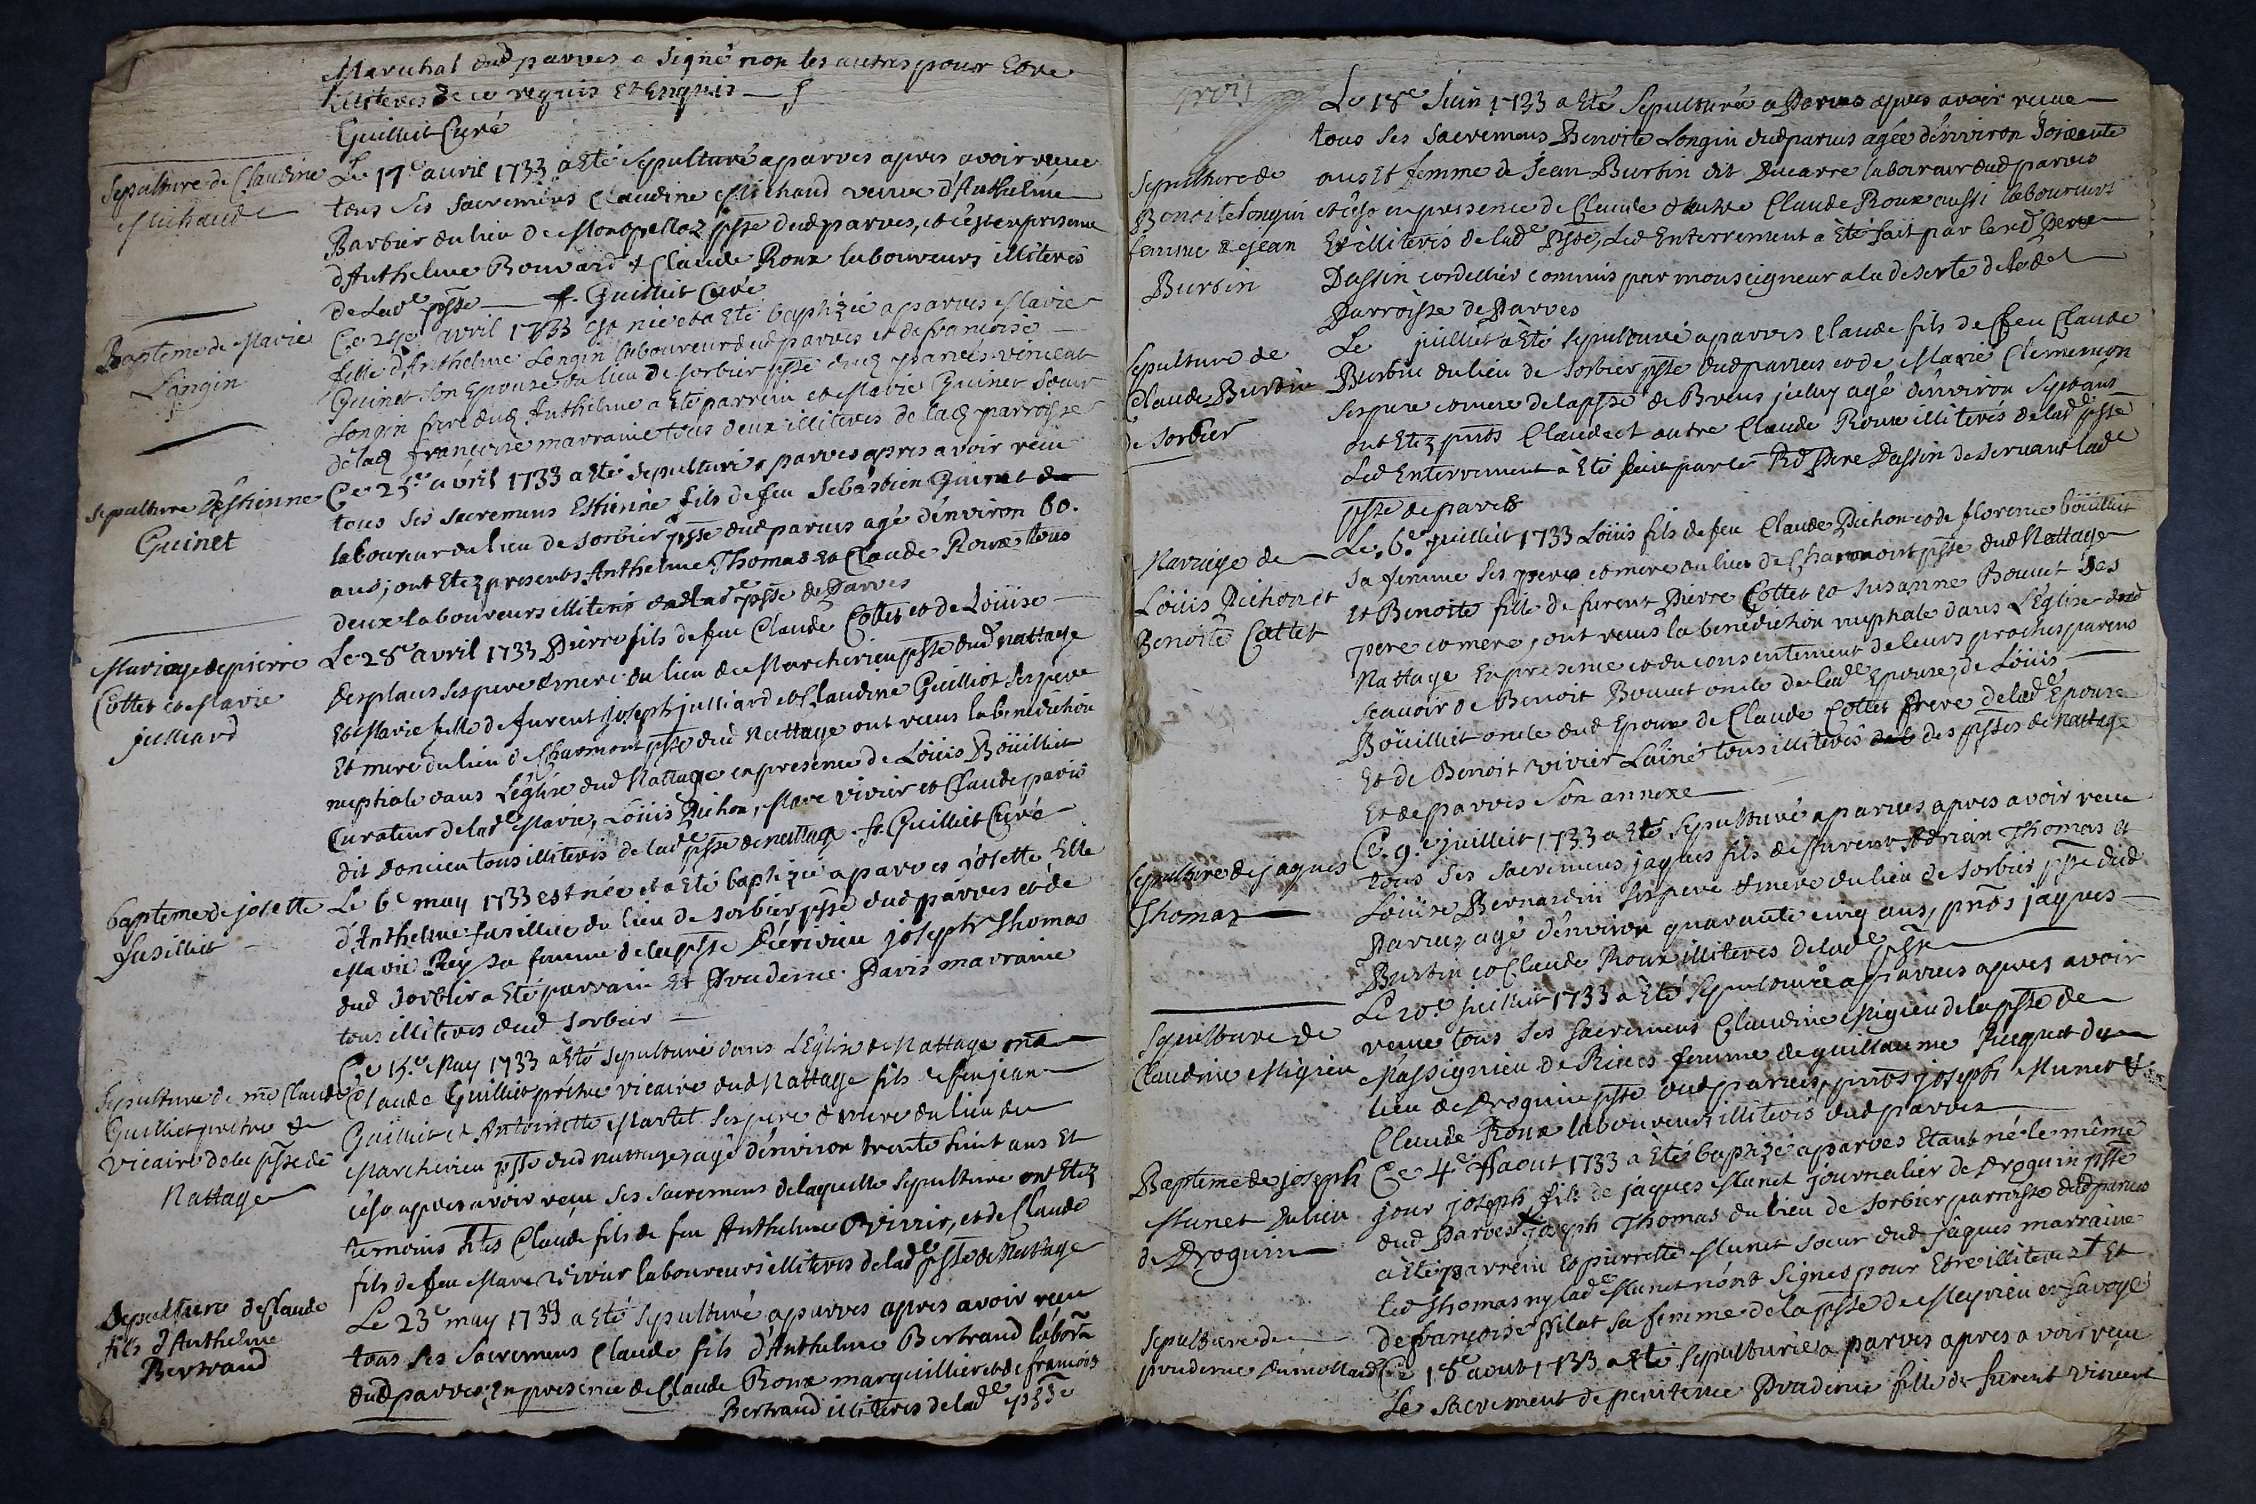 Marechal dud parves a signé non les autres pour Etre
illiteres de ce requis Et Enquis
Guilliet Curé
Sepulture de Claudine
Michaude
Le 17e avril 1733 a Eté sepulturé a parves apres avoir receu
tous ses sacremens Claudine Michaud veuve d'Anthelme
Barbier du lieu de psse dud parves, et c'est en presence
d'Anthelme Bouvard & Claude Roux laboureurs illiteres
de lade psse f. Guilliet Curé
Bapteme de Marie
Longin
Ce 24e avril 1733 est née et a Eté baptizée a parves Marie
fille d'Anthelme Longin laboureur dud parves et de françoise
Guinet son Epouse du lieu de sorbier psse dud parves vincent
Longin frere dud Anthelme a Eté parrein et Marie Guinet soeur
de lad françoise marraine tous deux illiteres de lad parroisse
Sepulture d'Estienne
Guinet
Ce 25e avril 1733 a Eté sepulturé a parves apres avoir receu
tous ses sacremens Estienne fils de feu Sebastien Guinet
laboureur du lieu de sorbier psse dud parves agé d'environ 60.
ans; ont Etez presents Anthelme Thomas et Claude Roux tous
deux laboureurs illiteres de lade psse de Parves
Mariage de pierre
Cottet et Marie
julliard
Le 28e avril 1733 Pierre fils de feu Claude Cottet et de Loüise
desplans ses pere & mere du lieu de Marchirieu psse dud nattage
Et Marie fille de furent joseph julliard et Claudine Guilliot ses pere
Et mere du lieu de Charmont psse dud Nattage ont receus la benediction
nuptiale dans L'église dud Nattage en presence de Loüis Boüilliet
Curateur de lade Marie, Loüis Pichon, Marc vivier et Claude pavis
dit Doncieu tous illiteres de lade psse de nattage. f. Guilliet Curé
bapteme de josette
fusilliet
Le 6e may 1733 est née et a Eté baptizée a parves josette fille
d'Anthelme fusilliet du lieu de sorbier psse dud parves et de
Marie Rey sa femme de la psse joseph Thomas
dud sorbier a Eté parrain Et Prudence Pavis marraine
tous illiteres dud sorbier
Sepulture de mre Claude
Guilliet pretre &
vicaire de la psse de
Nattage
Ce 15e May 1733 a Eté sepulturé dans L'Eglise de Nattage mre
Claude Guilliet pretre vicaire dud Nattage fils de feu jean
Guilliet & Antoinette Martel ses pere & mere du lieu de
Marchirieu psse dud nattage, agé d'environ trente huit ans Et
c'est apres avoir receu ses sacremens de laquelle sepulture ont Etez
temoins Claude fils de feu Anthelme vivier, et de Claude
fils de feu Marc vivier laboureurs illiteres de lade psse de Nattage
Sepulture de Claude
fils d'Anthelme
Bertrand
Le 23e may 1733 a Eté sepulturé a parves apres avoir receu
tous ses sacremens Claude fils d'Anthelme Bertrand
dud parves; En presence de Claude Roux marguillier et de françois
Bertrand illiteres de lade psse
Sepulture de
Benoite Longin
femme de jean
Burtin
Le 18e Juin 1733 a Eté Sepulturée a Parves apres avoir receue
tous ses sacremens Benoite Longin dud parves agée d'environ soixante
ans Et femme de Jean Burtin dit Ducarre laboureur dud parves
et c'est en presence de Claude & autre Claude Roux aussi laboureurs
Et illiteres de lade psse, Led Enterrement a Eté fait par le red Pere
Dassin cordellier commis par monseigneur a la deserte de lade
Parroisse de Parves
Sepulture de
Claude Burtin
de Sorbier
Le juilliet a Eté sepulturé a parves Claude fils de feu Claude
Burtin du lieu de sorbier psse dud parves et de Marie Clemençon
ses pere et mere de la psse de Brens jceluy agé d'environ sept ans
ont Etez pnts Claude et autre Claude Roux illiteres de lade psse
Led Enterrement a Eté fait par le Rd Pere Dassin deservant lade
psse de parves
Mariage de
Loüis Pichon et
Benoite Cottet
Le 6e juilliet 1733 Loüis fils de feu Claude Pichon et de florence boüilliet
sa femme ses pere et mere du lieu de Charmont psse dud Nattage
et Benoite fille de furent Pierre Cottet et Susanne Bouvet ses
pere et mere, ont receus la benediction nuptiale dans L'Eglise dud
Nattage En presence et du consentement de leurs proches parens
scauoir de Benoit Bouvet oncle de lade Epouse, de Loüis
Boüilliet oncle dud Epoux de Claude Cottet frere de lade Epouse
Et de Benoit vivier L'ainé tous illiteres des psses de Nattage
Et de parves son annexe
Sepulture de jaques
Thomas
Ce 9e juilliet 1733 a Eté Sepulturé a parves apres avoir receu
tous ses sacremens jaques fils de furent Adrien Thomas et
Loüise Bernardin ses pere & mere du lieu de sorbier psse dud
Parves, agé d'environ quarante cinq ans, pnts jaques
Burtin et Claude Roux illiteres de lade psse
Sepulture de
Claudine Migieu
Le 20e juilliet 1733 a Eté sepulturée a parves apres avoir
receue tous ses sacremens Claudine Migieu de la psse de
Massignieu de Rives femme de guillaume Picquet du
lieu de Proguin psse dud parves, pnts joseph Munet &
Claude Roux laboureurs illiteres dud parves
Bapteme de joseph
Munet du lieu
de Proguin
Ce 4e aout 1733 a Eté baptizé a parves Etant né le même
jour joseph fils de jaques Munet journalier de Proguin psse
dud Parves + joseph Thomas du lieu de sorbier parroisse dud parves
a Eté parrein Et pierrette Munet soeur dud jaques marraine
Led Thomas ny lade Munet n'ont signés pour Etre illiteres + Et
de françoise Pilat sa femme de la psse de Meyrieu en savoye
Sepulture de
prudence dumollard
Le 18e aout 1733 a Eté sepulturée a parves apres avoir receu
Le sacrement de penitence Prudence fille de furent vincent